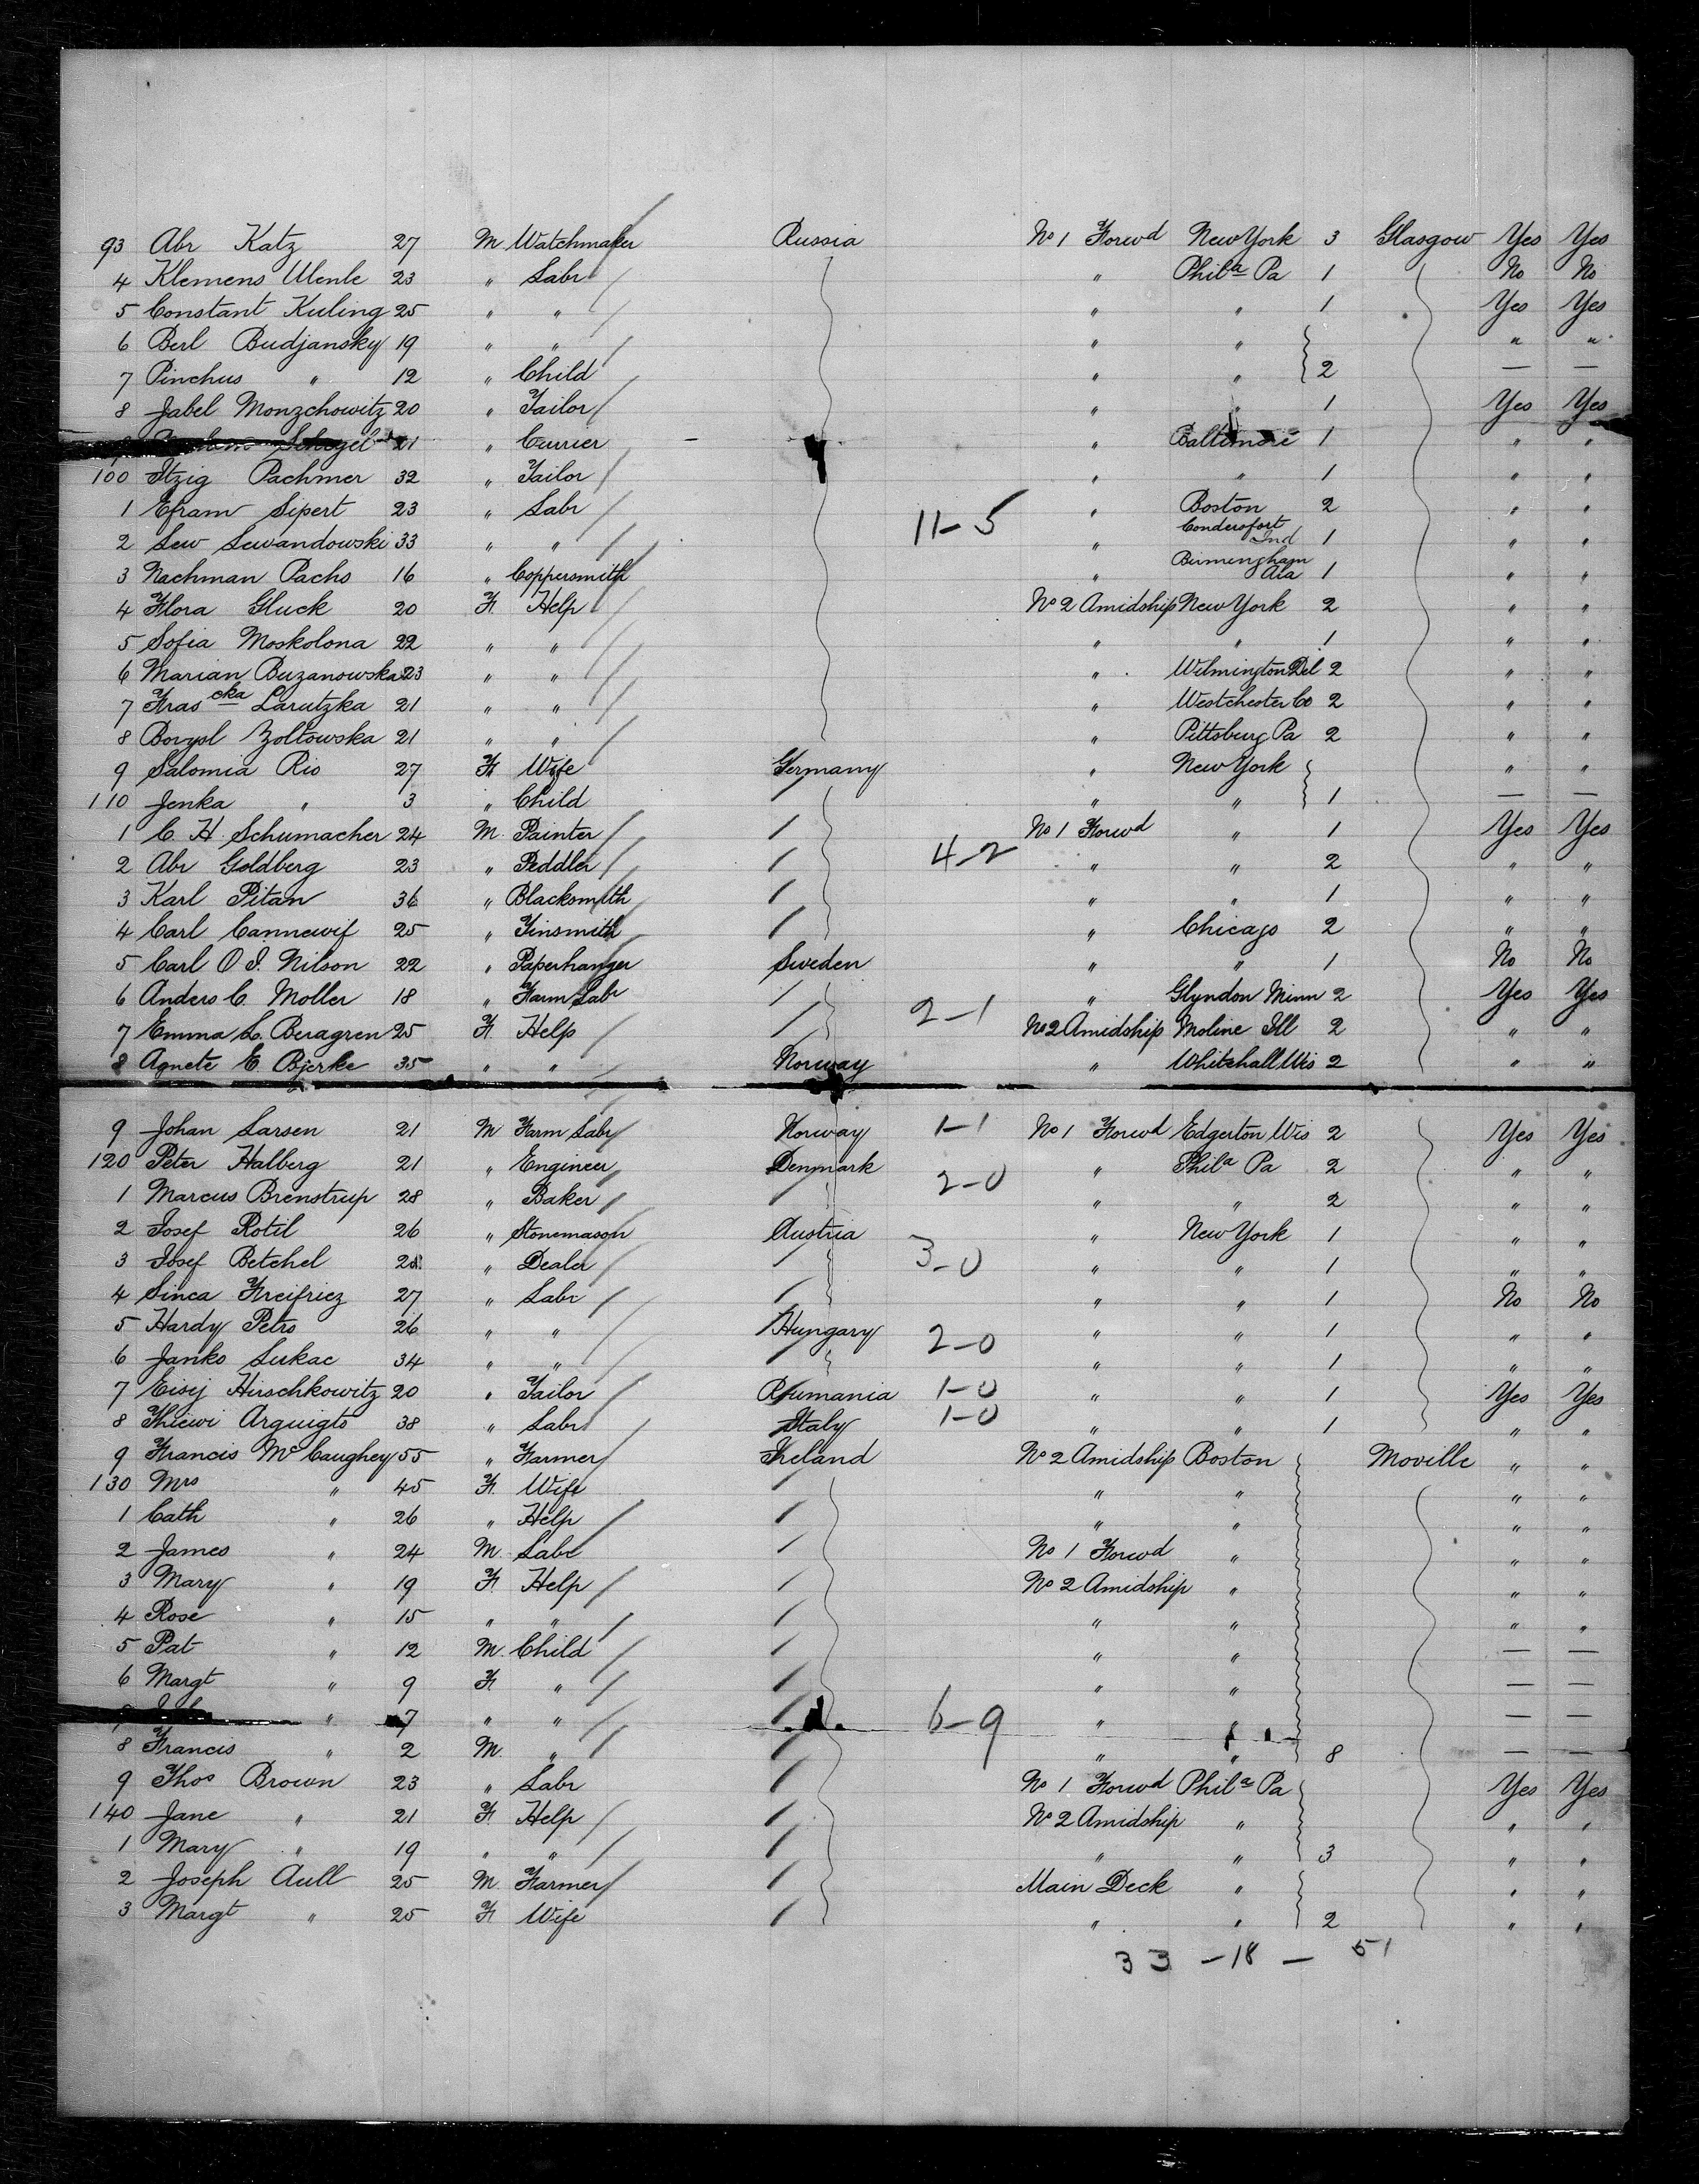 93 Abr Katz 27 M Watchmaker Russia No 1 Forwd New York 3 Glasgow Yes Yes
4 Klemens Ulenle 23 " Labr " Phila Pa 1 No No
5 Constant Kuling 25 " " " " 1 Yes Yes
6 Berl Budjansky 19 " " " " " "
7 Pinchus " 12 " Child " " 2 — —
8 Jabel Monzchowitz 20 " Tailor " " 1 Yes Yes
21 " Currier " Baltimore 1 " "
100 Itzig Pachmer 32 " Tailor " " 1 " "
1 Efram Sipert 23 " Labr 11-5 " Boston 2 " "
2 Lew Lewandowski 33 " " " Condersfort Ind 1 " "
3 Nachman Pachs 16 " Coppersmith " Birmingham Ala 1 " "
4 Flora Gluck 20 F. Help No 2 Amidship New York 2 " "
5 Sofia Moskolona 22 " " " " 1 " "
6 Marian Buzanowska 23 " " " Wilmington Del 2 " "
7 Frascka Larutzka 21 " " " Westchester Co 2 " "
8 Borysl Zoltowska 21 " " " Pittsburg Pa 2 " "
9 Salomia Rio 27 F. Wife Germany " New York " "
110 Jenka " 3 " Child " " 1 — —
1 C. H. Schumacher 24 M. Painter / No 1 Forwd " 1 Yes Yes
2 Abr Goldberg 23 " Peddler / 4-2 " " 2 " "
3 Karl Pitan 36 " Blacksmith / " " 1 " "
4 Carl Cannewif 25 " Tinsmith / " Chicago 2 " "
5 Carl O I. Nilson 22 " Paperhanger Sweden " " 1 No No
6 Anders C. Moller 18 " Farm Labr / 2-1 " Glyndon Minn 2 Yes Yes
7 Emma L. Beragren 25 F. Help / No 2 Amidship Moline Ill 2 " "
8 Agnete E Bjerke 35 " " Norway " Whitehall Wis 2 " "
9 Johan Larsen 21 M Farm Labr Norway 1-1 No 1 Forwd Edgerton Wis 2 Yes Yes
120 Peter Halberg 21 " Engineer Denmark 2-0 " Phila Pa 2 " "
1 Marcus Brenstrup 28 " Baker / " " 2 " "
2 Josef Rotil 26 " Stonemason Austria " New York 1 " "
3 Josef Betchel " Dealer / 3-0 " " 1 " "
4 Sinca Freifriez 27 " Labr / " " 1 No No
5 Hardy Petro 26 " " Hungary 2-0 " " 1 " "
6 Janko Lukac 34 " " / " " 1 " "
7 Eisij Hirschkowitz 20 " Tailor Rumania 1-0 " " 1 Yes Yes
8 Thiewi Arguigto 38 " Labr Italy 1-0 " " 1 " "
9 Francis McCaughey 55 " Farmer Ireland No 2 Amidship Boston Moville " "
130 Mrs " 45 F. Wife / " " " "
1 Cath " 26 " Help / " " " "
2 James " 24 M. Labr / No 1 Forwd " " "
3 Mary " 19 F. Help / No 2 Amidship " " "
4 Rose " 15 " " / " " " "
5 Pat " 12 M. Child / " " — —
6 Margt " 9 F. " / " " — —
" 7 " " / 6-9 " " — —
8 Francis " 2 M. " / " " 8 — —
9 Thos Brown 23 " Labr / No 1 Forwd Phila Pa Yes Yes
140 Jane " 21 F. Help / No 2 Amidship " " "
1 Mary " 19 " " / " " 3 " "
2 Joseph Aull 25 M. Farmer / Main Deck " " "
3 Margt " 25 F. Wife / " " 2 " "
33 - 18 - 51